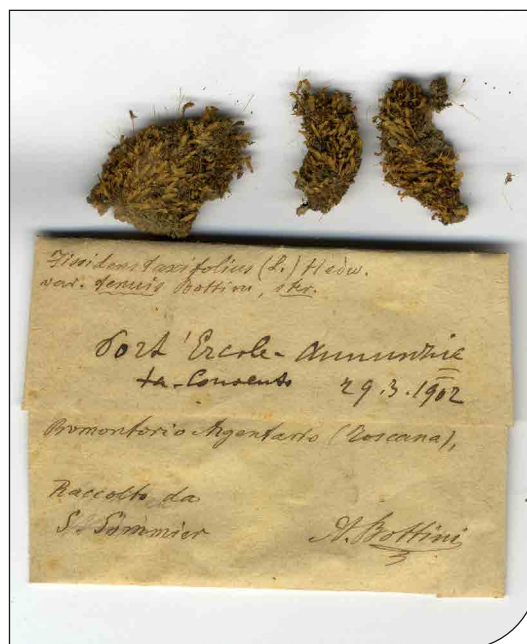 Fissidens taxifolius (L.) Hedw.
var. tenuis Bottini, ster.
Port'Ercole - Annunzia
ta - Convento 29.3.1902
Promontorio Argentario (Toscana),
Raccolto da
S. Sommier
A. Bottini